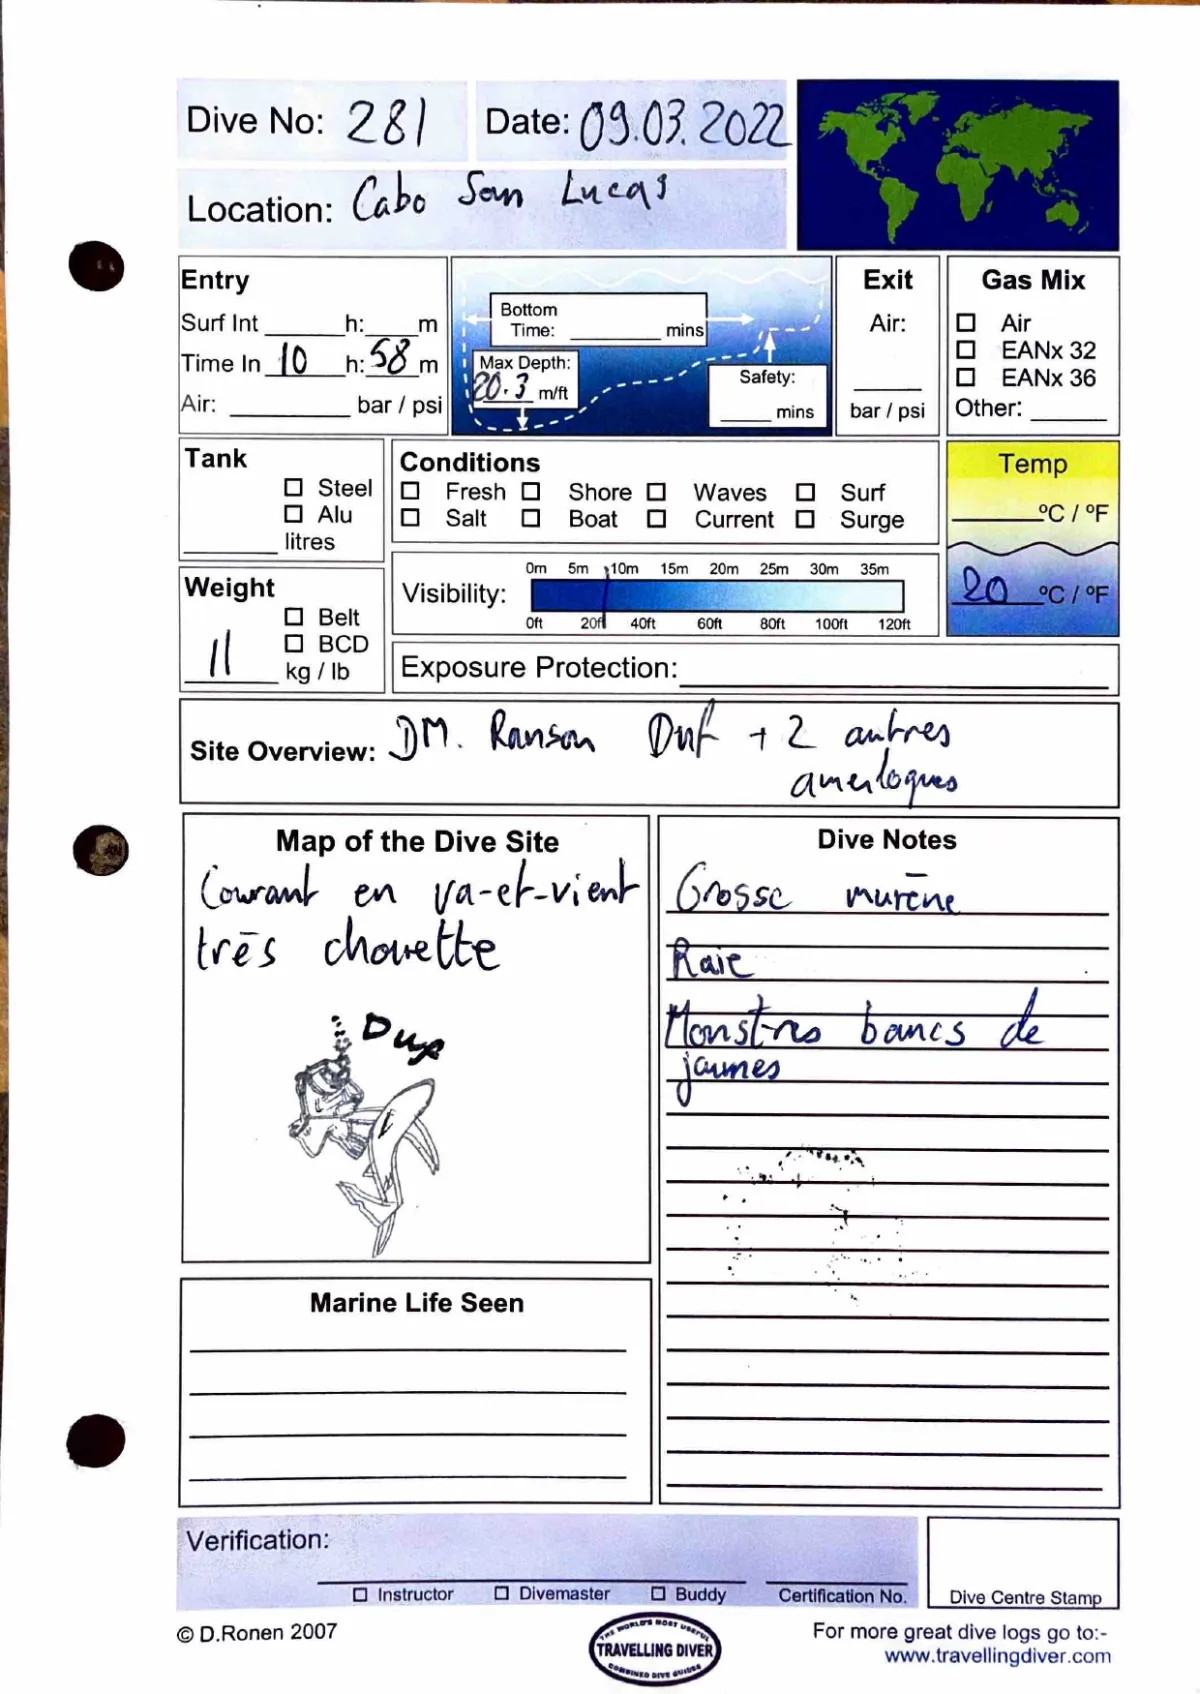 Dive No: 281
Date: 09.03.2022
Location: Cabo San Lucas
Entry
Surf Int ______h:____m
Time In 10 h: 58 m
Air: ________ bar / psi
Bottom
Time: ________ mins
Max Depth:
20.3 m/ft
Safety:
____ mins
Exit
Air:
bar / psi
Gas Mix
☐ Air
☐ EANx 32
☐ EANx 36
Other: ______
Tank
☐ Steel
☐ Alu
litres
Conditions
☐ Fresh ☐ Shore ☐ Waves ☐ Surf
☐ Salt ☐ Boat ☐ Current ☐ Surge
Temp
ºC / ºF
20 ºC / ºF
Weight
☐ Belt
☐ BCD
11 kg / lb
0m 5m 10m 15m 20m 25m 30m 35m
Visibility:
0ft 20ft 40ft 60ft 80ft 100ft 120ft
Exposure Protection:
Site Overview: DM. Ranson Duf + 2 autres
amerloques
Map of the Dive Site
Courant en va-et-vient
très chouette
Dup
Dive Notes
Grosse murène
Raie
Monstres bancs de
jaunes
Marine Life Seen
Verification:
☐ Instructor ☐ Divemaster ☐ Buddy Certification No.
Dive Centre Stamp
© D.Ronen 2007
THE WORLD'S MOST USEFUL
TRAVELLING DIVER
COMBINED DIVE GUIDES
For more great dive logs go to:-
www.travellingdiver.com